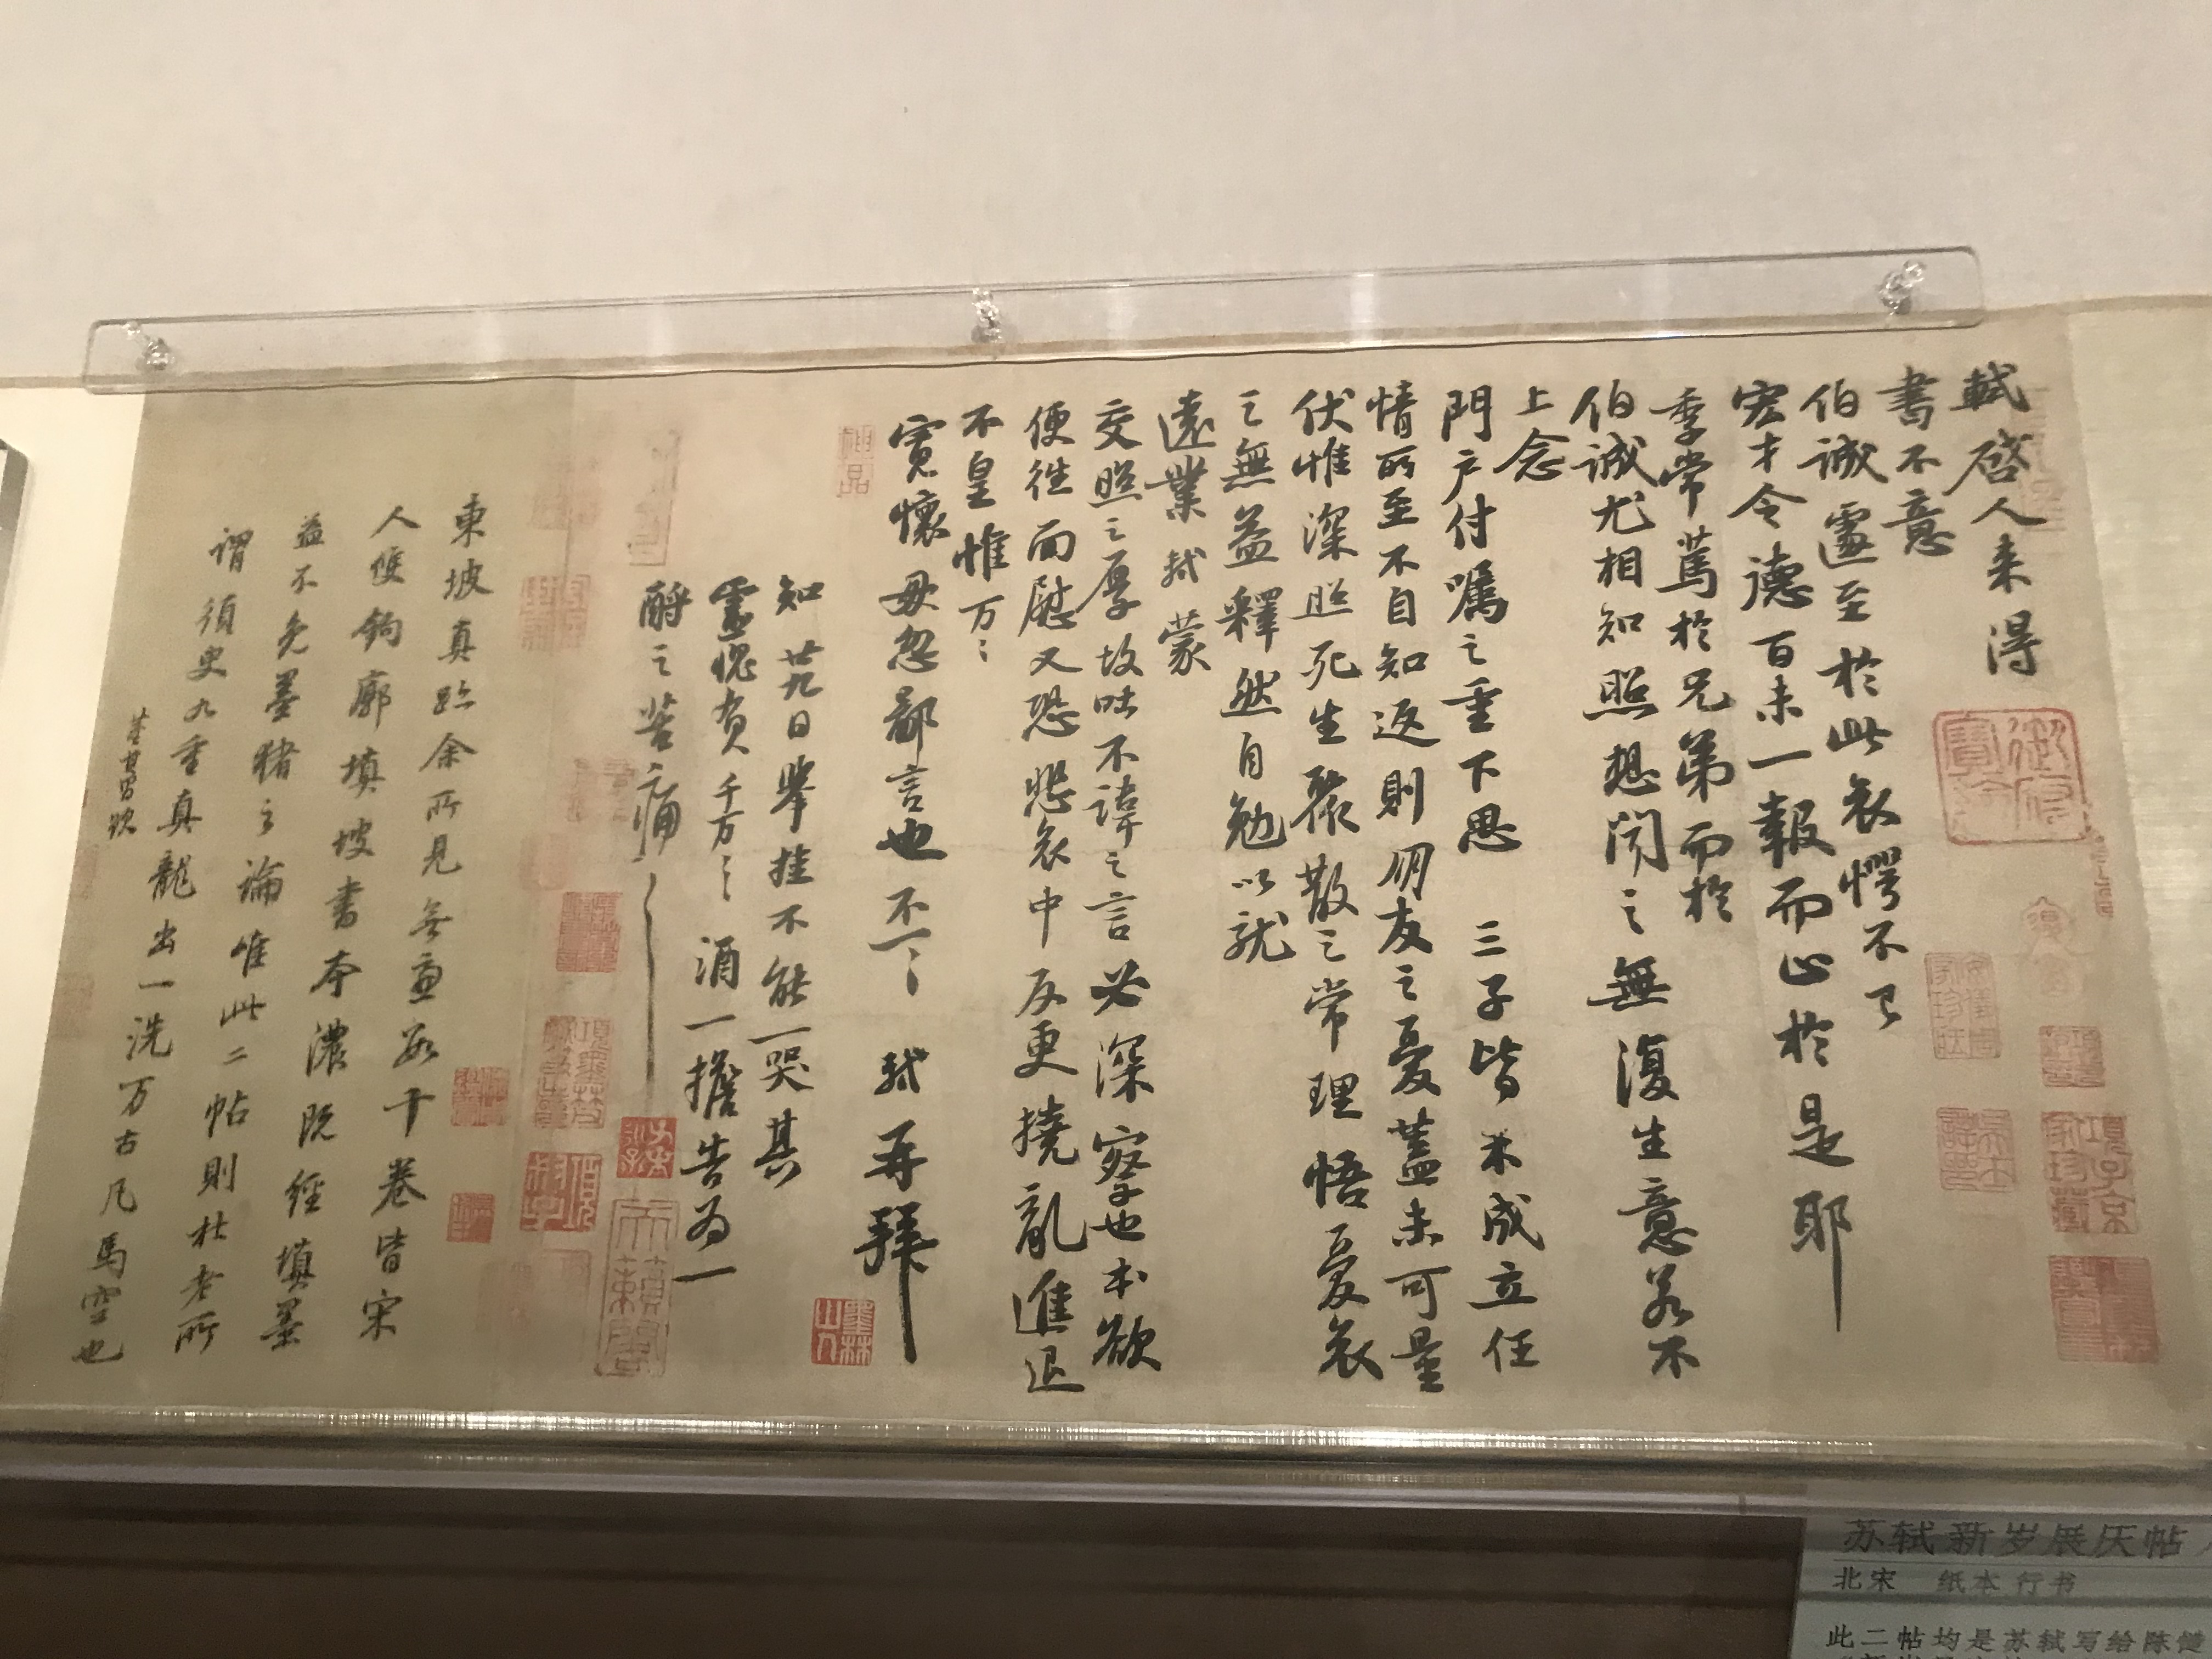 軾啓人来得
書不意
伯誠遽至於此哀愕不已
宏才令德百未一報而止於是耶
季常篤於兄弟而於
伯誠尤相知照想聞之無復生意若不
上念
門户付囑之重下思三子皆未成立任
情所至不自知返則朋友之憂蓋未可量
伏惟深照死生聚散之常理悟憂哀
之無益釋然自勉以就
遠業軾蒙
交照之厚故吐不諱之言必深察也本欲
便往面慰又恐悲哀中反更撓亂進退
不皇惟万〻
寬懷毋忽鄙言也不一〻軾再拜
知廿九日舉挂不能一哭其
靈愧負千万〻酒一擔告為一
酹之苦痛〻
神品
東坡真跡余所見無慮數十卷皆宋
人雙鉤廓填坡書本濃既經填墨
益不免墨猪之論惟此二帖則杜老所
謂須臾九重真龍出一洗万古凡馬空也
董其昌跋
御府寶繪
項子京家珍藏
天籟閣
墨林山人
苏轼新岁展庆帖
北宋 纸本 行书
此二帖均是苏轼写给陈慥